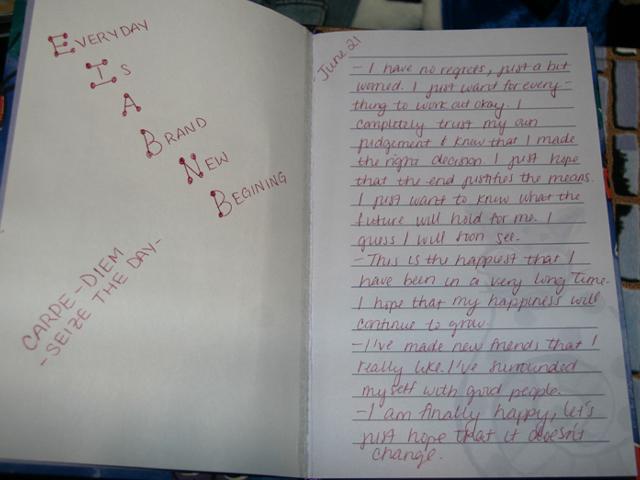 EVERYDAY
IS
A
BRAND
NEW
BEGINING
CARPE-DIEM
-SEIZE THE DAY-
June 21
- I have no regrets, just a bit
worried. I just want for every-
thing to work out okay. I
completely trust my own
judgement & know that I made
the right decision. I just hope
that the end justifies the means.
I just want to know what the
future will hold for me. I
guess I will soon see.
- This is the happiest that I
have been in a very long time.
I hope that my happiness will
continue to grow.
- I've made new friends that I
really like. I've surrounded
myself with good people.
- I am finally happy, let's
just hope that it doesn't
change.